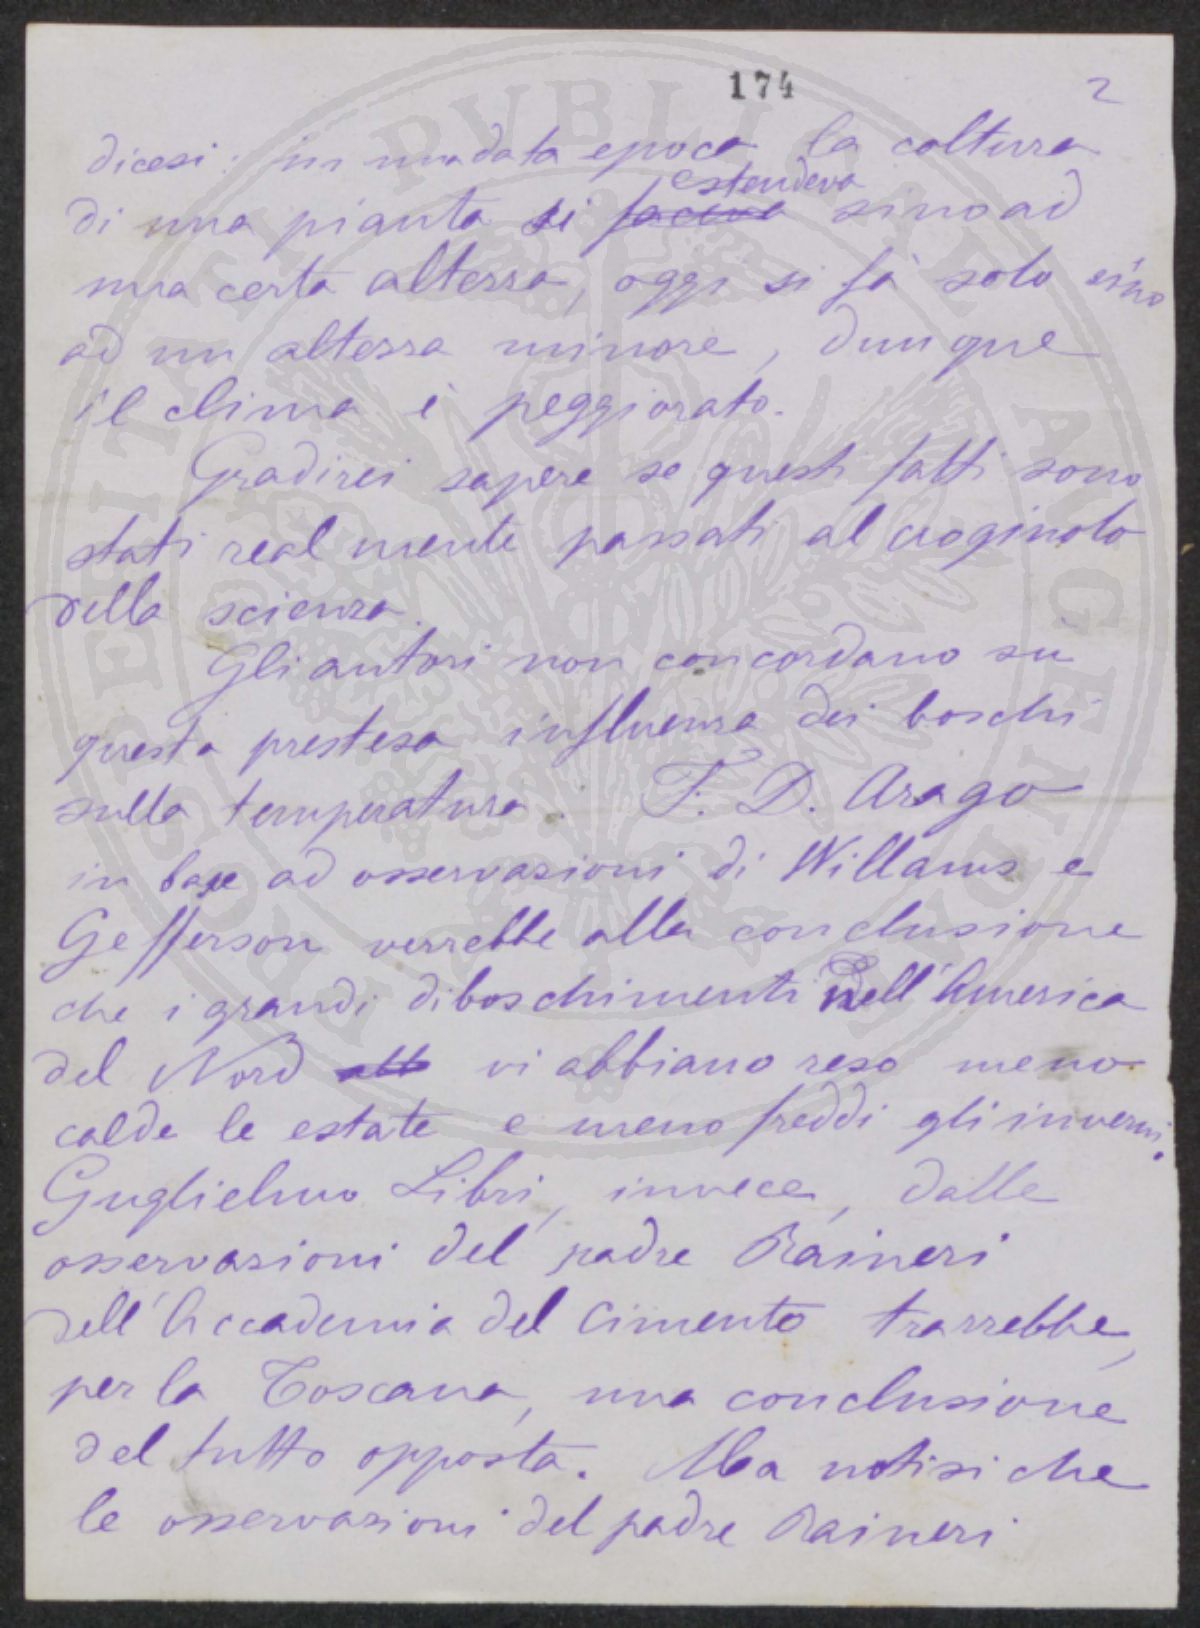 174 2
dicesi: in una data epoca la coltura
estendeva
di una pianta si faceva sino ad
una certa altezza, oggi si fà solo sino
ad un altezza minore, dunque
il clima è peggiorato.
Gradirei sapere se questi fatti sono
stati realmente passati al crogiuolo
della scienza.
Gli autori non concordano sù
questa pretesa influenza dei boschi
sulla temperatura. F. D. Arago
in base ad osservazioni di Willams e
Gefferson verrebbe alla conclusione
che i grandi diboschimenti nell'America
del Nord vi abbiano reso meno
calde le estate e meno freddi gli inverni.
Guglielmo Libri, invece, dalle
osservazioni del padre Raineri
dell'Accademia del Cimento trarrebbe,
per la Toscana, una conclusione
del tutto opposta. Ma notisi che
le osservazioni del padre Raineri